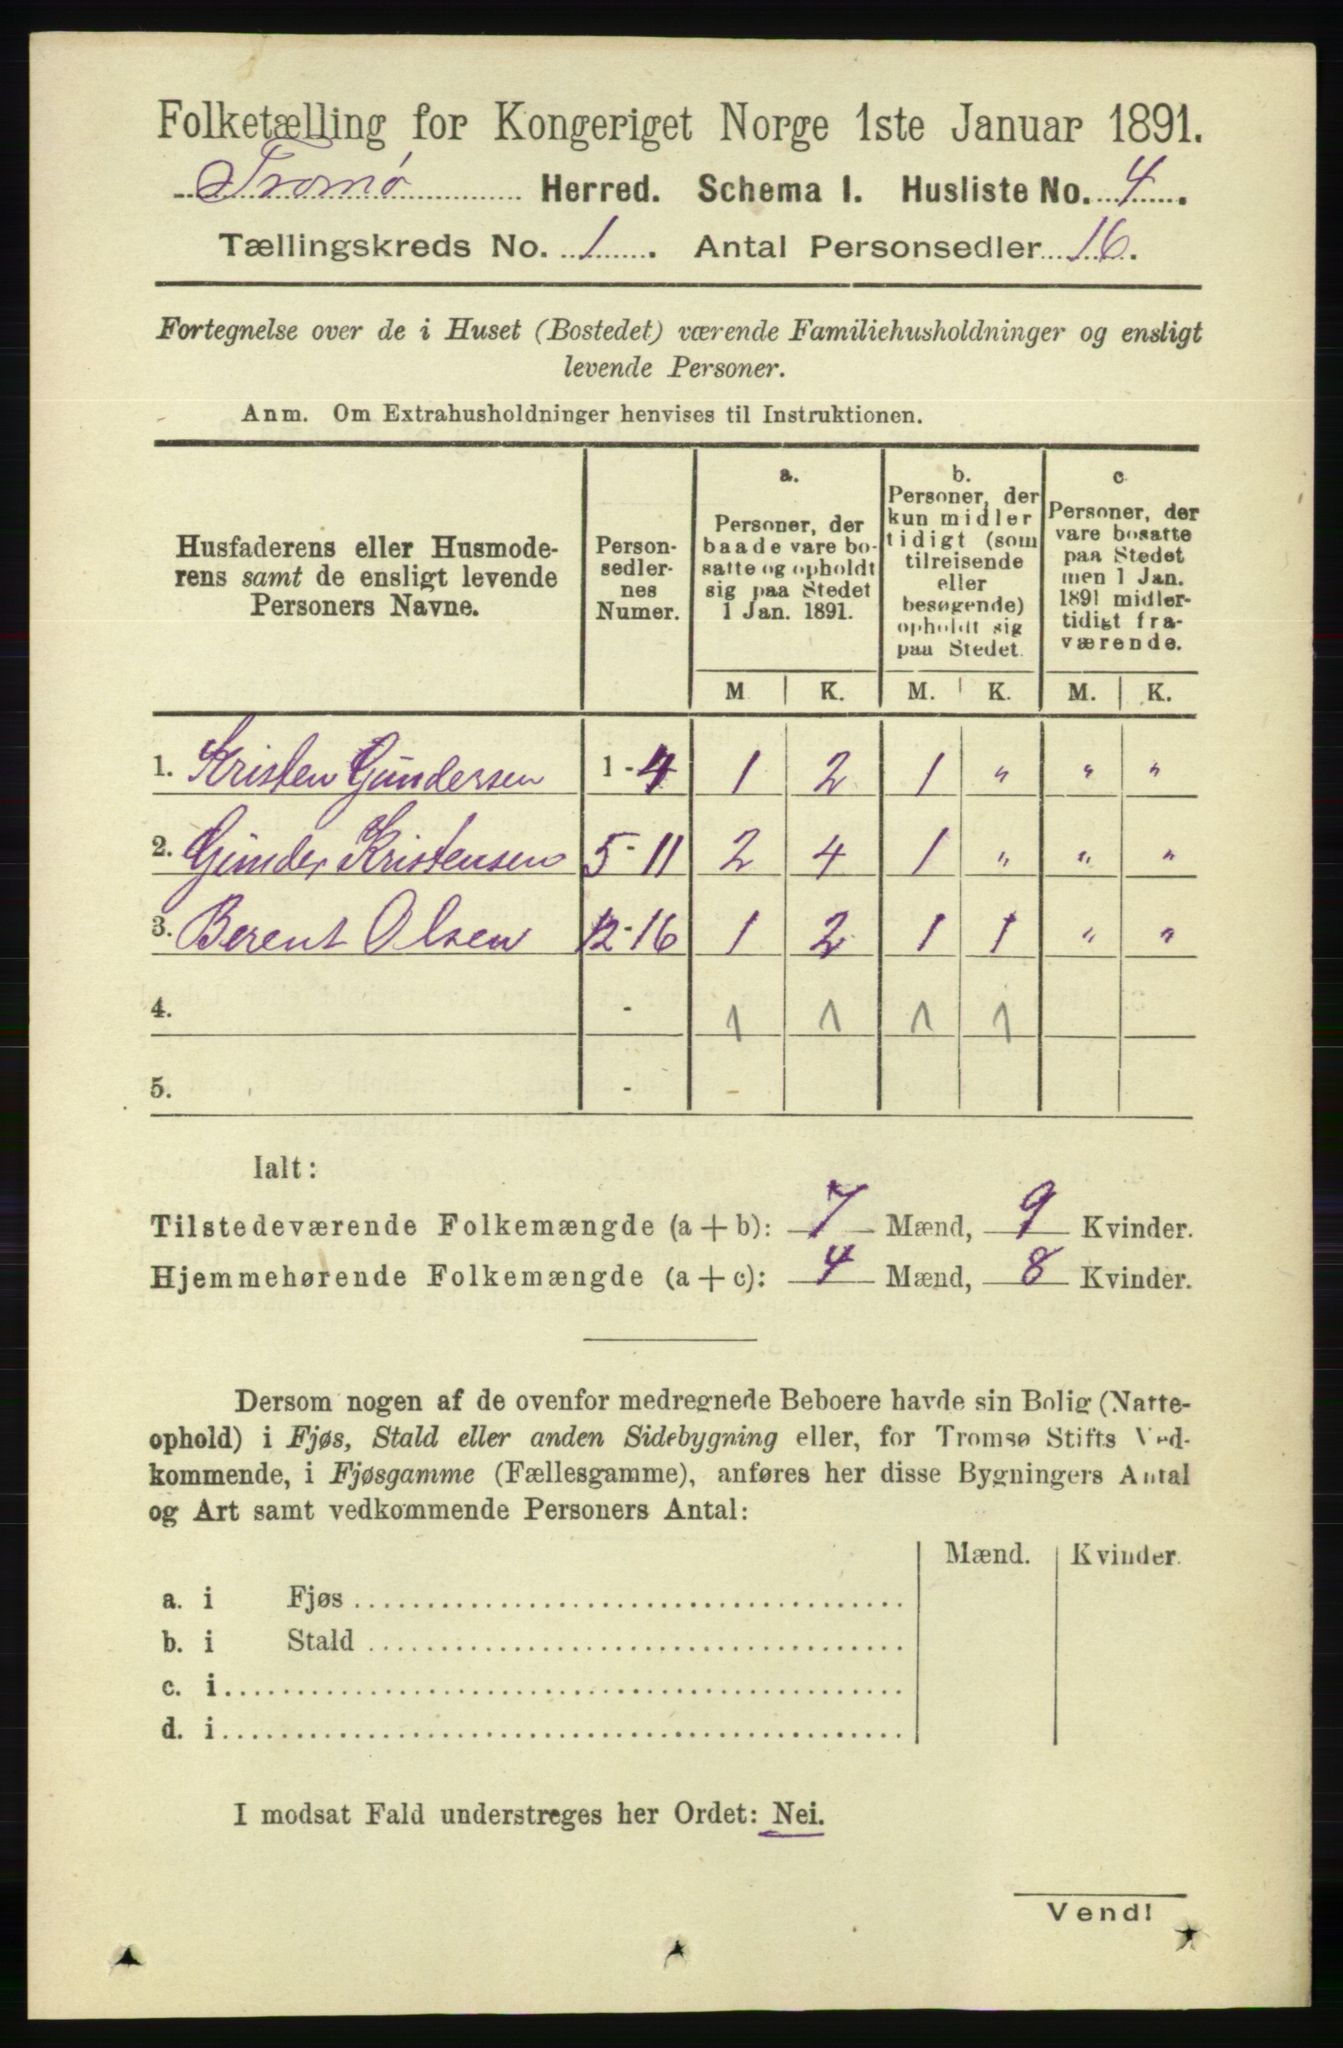 Folketælling for Kongeriget Norge 1ste Januar 1891.
Tromø Herred. Schema I. Husliste No. 4.
Tællingskreds No. 1. Antal Personsedler 16.
Fortegnelse over de i Huset (Bostedet) værende Familiehusholdninger og ensligt
levende Personer.
Anm. Om Extrahusholdninger henvises til Instruktionen.
Husfaderens eller Husmode-
rens samt de ensligt levende
Personers Navne.
Person-
sedler-
nes
Numer.
a.
Personer, der
baade vare bo-
satte og opholdt
sig paa Stedet
1 Jan. 1891.
b.
Personer, der
kun midler
tidigt (som
tilreisende
eller
besøgende)
opholdt sig
paa Stedet.
c
Personer, der
vare bosatte
paa Stedet
men 1 Jan.
1891 midler-
tidigt fra-
værende.
M K. M. K. M. K.
1. Kristen Gundersen 1-4 1 2 1 " " "
2. Gunder Kristensen 5-11 2 4 1 " " "
3. Berent Olsen 12-16 1 2 1 1 " "
4. - 1 1 1 1
5. -
Ialt:
Tilstedeværende Folkemængde (a+b): 7 Mænd, 9 Kvinder.
Hjemmehørende Folkemængde (a+c): 4 Mænd, 8 Kvinder.
Dersom nogen af de ovenfor medregnede Beboere havde sin Bolig (Natte-
ophold) i Fjøs, Stald eller anden Sidebygning eller, for Tromsø Stifts Ved-
kommende, i Fjøsgamme (Fællesgamme), anføres her disse Bygningers Antal
og Art samt vedkommende Personers Antal:
Mænd. Kvinder.
a. i Fjøs
b. i Stald
c. i
d. i
I modsat Fald understreges her Ordet: Nei.
Vend!